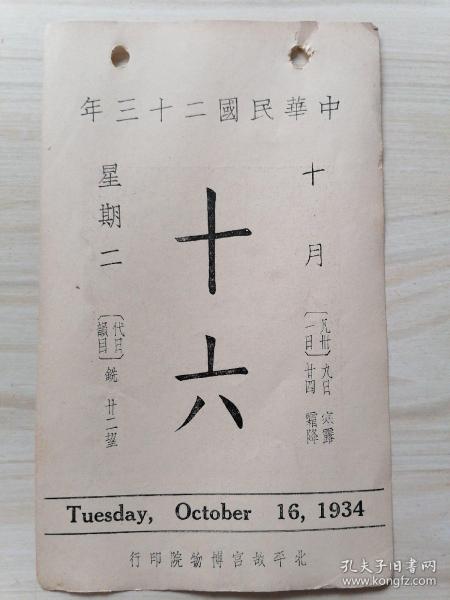 中華民國二十三年
十月
〔凡卅一日〕九日寒露
廿四霜降
十六
星期二
〔代日韻目〕銑 廿二望
Tuesday, October 16, 1934
北平故宮博物院印行
孔夫子旧书网
www.kongfz.com